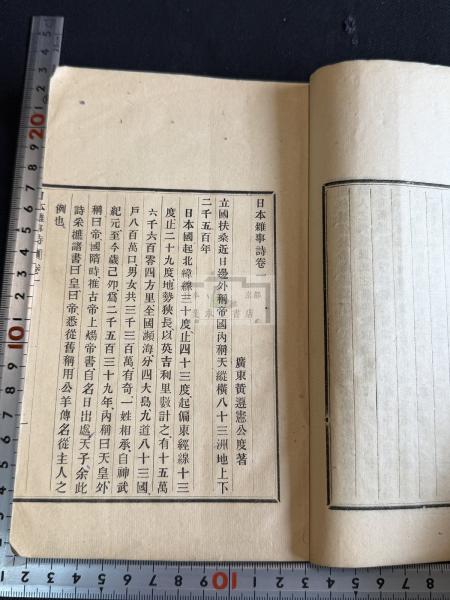 日本雜事詩卷一
廣東黃遵憲公度著
立國扶桑近日邊外稱帝國內稱天縱橫八十三洲地上下
二千五百年
日本國起北緯線三十度止四十三度起偏東經線十三
度止二十九度地勢狹長以英吉利里數計之有十五萬
六千六百零四方里全國瀕海分四大島九道八十三國
戶八百萬口男女共三千三百萬有奇一姓相承自神武
紀元至今歲己卯爲二千五百三十九年內稱曰天皇外
稱曰帝國隋時推古帝上煬帝書自名日出處天子余此
詩采摭諸書曰皇曰帝悉從舊稱用公羊傳名從主人之
例也